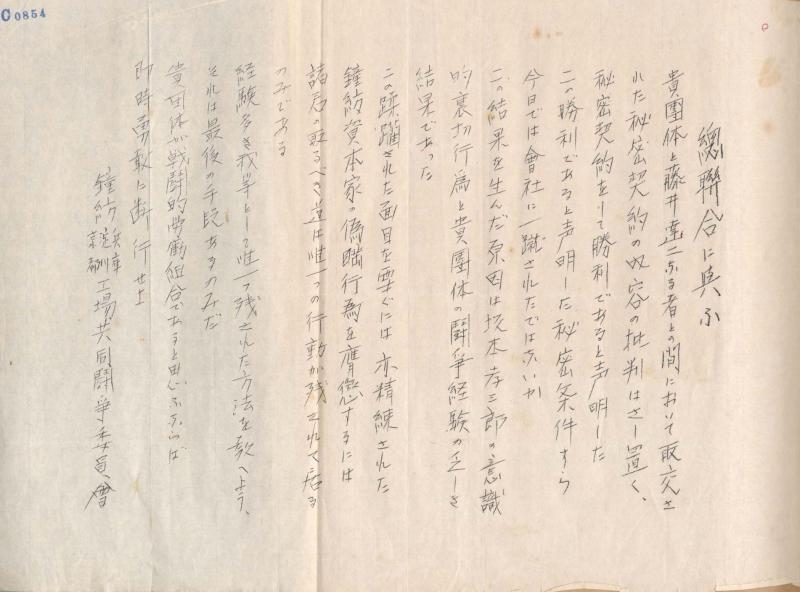 C0854
總聯合に與ふ
貴團体と藤井達二なる者との間において取交さ
れた秘密契約の内容の批判はさし置く、
秘密契約をして勝利であると声明した
この勝利であると声明した秘密条件すら
今日では會社に一蹴されたではないか
この結果を生んだ原因は坂本孝三郎の意識
的裏切行為と貴團体の闘爭経験の乏しき
結果であった
この蹂躙された面目を雪ぐには亦精練された
鐘紡資本家の偽瞞行為を膺懲するには
諸君の取るべき道は唯一つの行動が残されて居る
のみである
経験多き我等として唯一つ残された方法を教へよう、
それは最後の手段あるのみだ
貴団体が戦闘的労働組合であると思ふならば
即時勇敢に断行せよ
鐘紡 兵庫 淀川 京都 工場共同闘爭委員會